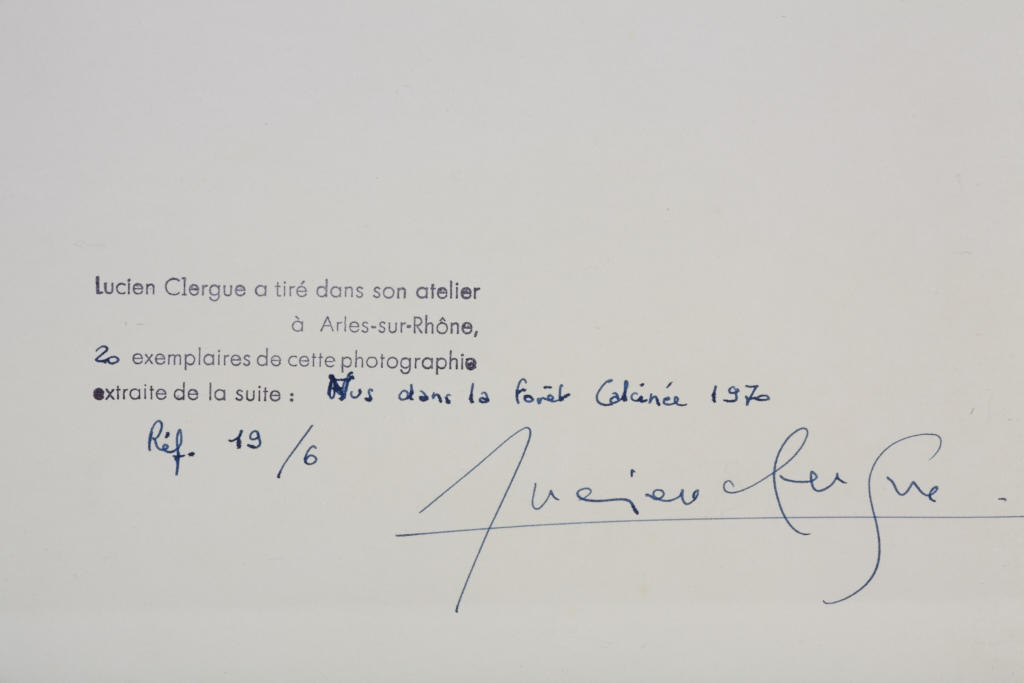 Lucien Clergue a tiré dans son atelier
à Arles-sur-Rhône,
20 exemplaires de cette photographie
extraite de la suite : Nus dans la forêt Calcinée 1970
Réf. 19/6
Lucien Clergue.